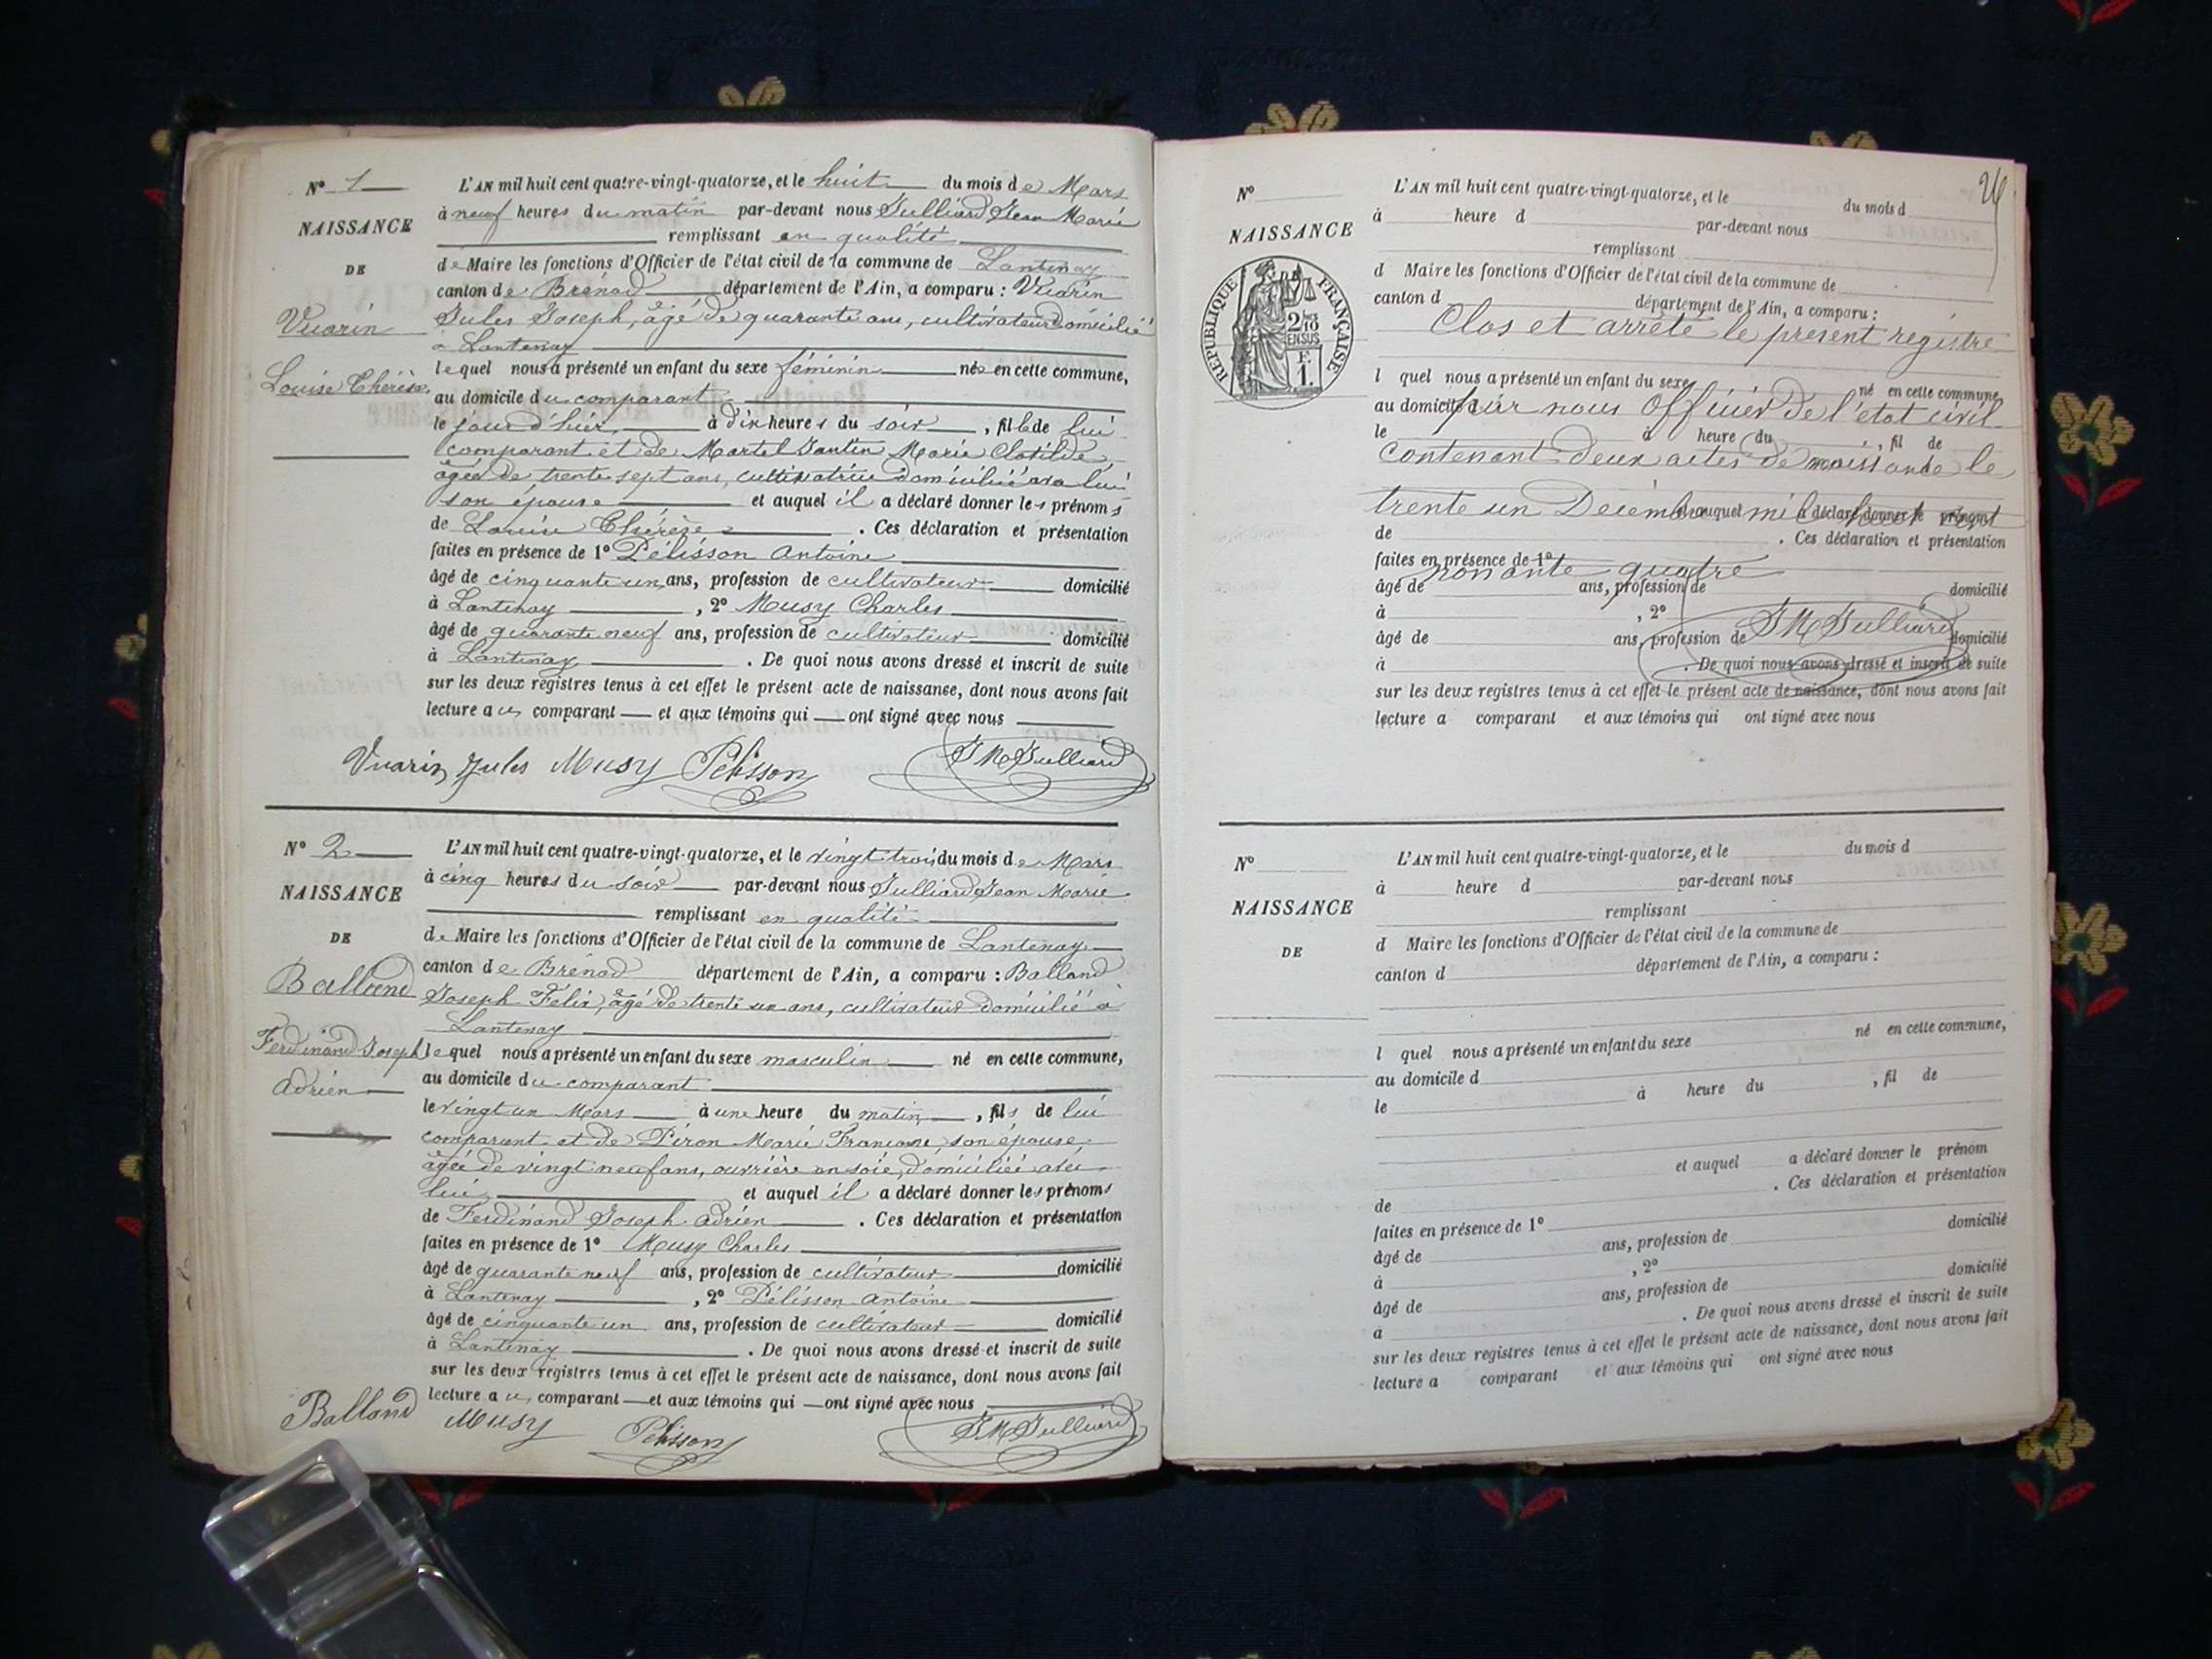 N° 1
NAISSANCE
DE
Vuarin
Louise Thérèse
L'AN mil huit cent quatre-vingt-quatorze, et le huit du mois de Mars
à neuf heures du matin par-devant nous Julliard Jean Marie
remplissant en qualité
de Maire les fonctions d'Officier de l'état civil de la commune de Lantenay
canton de Brénod département de l'Ain, a comparu : Vuarin
Jules Joseph, âgé de quarante ans, cultivateur domicilié
à Lantenay
lequel nous a présenté un enfant du sexe féminin née en cette commune,
au domicile du comparant
le jour d'hier, à dix heures du soir, fille de lui
comparant et de Martel Santin Marie Clotilde,
âgée de trente sept ans, cultivatrice domiciliée avec lui
son épouse et auquel il a déclaré donner les prénoms
de Louise Thérèse . Ces déclaration et présentation
faites en présence de 1° Pélisson Antoine
âgé de cinquante un ans, profession de cultivateur domicilié
à Lantenay , 2° Musy Charles
âgé de quarante neuf ans, profession de cultivateur domicilié
à Lantenay . De quoi nous avons dressé et inscrit de suite
sur les deux registres tenus à cet effet le présent acte de naissance, dont nous avons fait
lecture au comparant et aux témoins qui ont signé avec nous
Vuarin Jules Musy Pelisson JM Julliard
N° 2
NAISSANCE
DE
Balland
Ferdinand Joseph
Adrien
L'AN mil huit cent quatre-vingt-quatorze, et le vingt trois du mois de Mars
à cinq heures du soir par-devant nous Julliard Jean Marie
remplissant en qualité
de Maire les fonctions d'Officier de l'état civil de la commune de Lantenay
canton de Brénod département de l'Ain, a comparu : Balland
Joseph Félix, âgé de trente un ans, cultivateur domicilié à
Lantenay
lequel nous a présenté un enfant du sexe masculin né en cette commune,
au domicile du comparant
le vingt un Mars à une heure du matin, fils de lui
comparant et de Péron Marie Francoise, son épouse
âgée de vingt neuf ans, ouvrière en soie, domiciliée avec
lui, et auquel il a déclaré donner les prénoms
de Ferdinand Joseph Adrien . Ces déclaration et présentation
faites en présence de 1° Musy Charles
âgé de quarante neuf ans, profession de cultivateur domicilié
à Lantenay , 2° Pélisson Antoine
âgé de cinquante un ans, profession de cultivateur domicilié
à Lantenay . De quoi nous avons dressé et inscrit de suite
sur les deux registres tenus à cet effet le présent acte de naissance, dont nous avons fait
lecture au comparant et aux témoins qui ont signé avec nous
Balland Musy Pelisson JM Julliard
N°
NAISSANCE
RÉPUBLIQUE FRANÇAISE
2/10
EN SUS
F.
1.
L'AN mil huit cent quatre-vingt-quatorze, et le du mois d
à heure d par-devant nous
remplissant
d Maire les fonctions d'Officier de l'état civil de la commune de
canton d département de l'Ain, a comparu :
Clos et arrêté le présent registre
l quel nous a présenté un enfant du sexe né en cette commune,
au domicile d
par nous Officier de l'état civil
le à heure du , fil de
contenant deux actes de naissance le
trente un Décembre mil huit cent
et auquel a déclaré donner le prénom
de . Ces déclaration et présentation
faites en présence de 1°
nonante quatre
âgé de ans, profession de domicilié
à , 2°
JM Julliard
âgé de ans, profession de domicilié
à . De quoi nous avons dressé et inscrit de suite
sur les deux registres tenus à cet effet le présent acte de naissance, dont nous avons fait
lecture a comparant et aux témoins qui ont signé avec nous
N°
NAISSANCE
DE
L'AN mil huit cent quatre-vingt-quatorze, et le du mois d
à heure d par-devant nous
remplissant
d Maire les fonctions d'Officier de l'état civil de la commune de
canton d département de l'Ain, a comparu :
l quel nous a présenté un enfant du sexe né en cette commune,
au domicile d
le à heure du , fil de
et auquel a déclaré donner le prénom
de . Ces déclaration et présentation
faites en présence de 1°
âgé de ans, profession de domicilié
à , 2°
âgé de ans, profession de domicilié
à . De quoi nous avons dressé et inscrit de suite
sur les deux registres tenus à cet effet le présent acte de naissance, dont nous avons fait
lecture a comparant et aux témoins qui ont signé avec nous